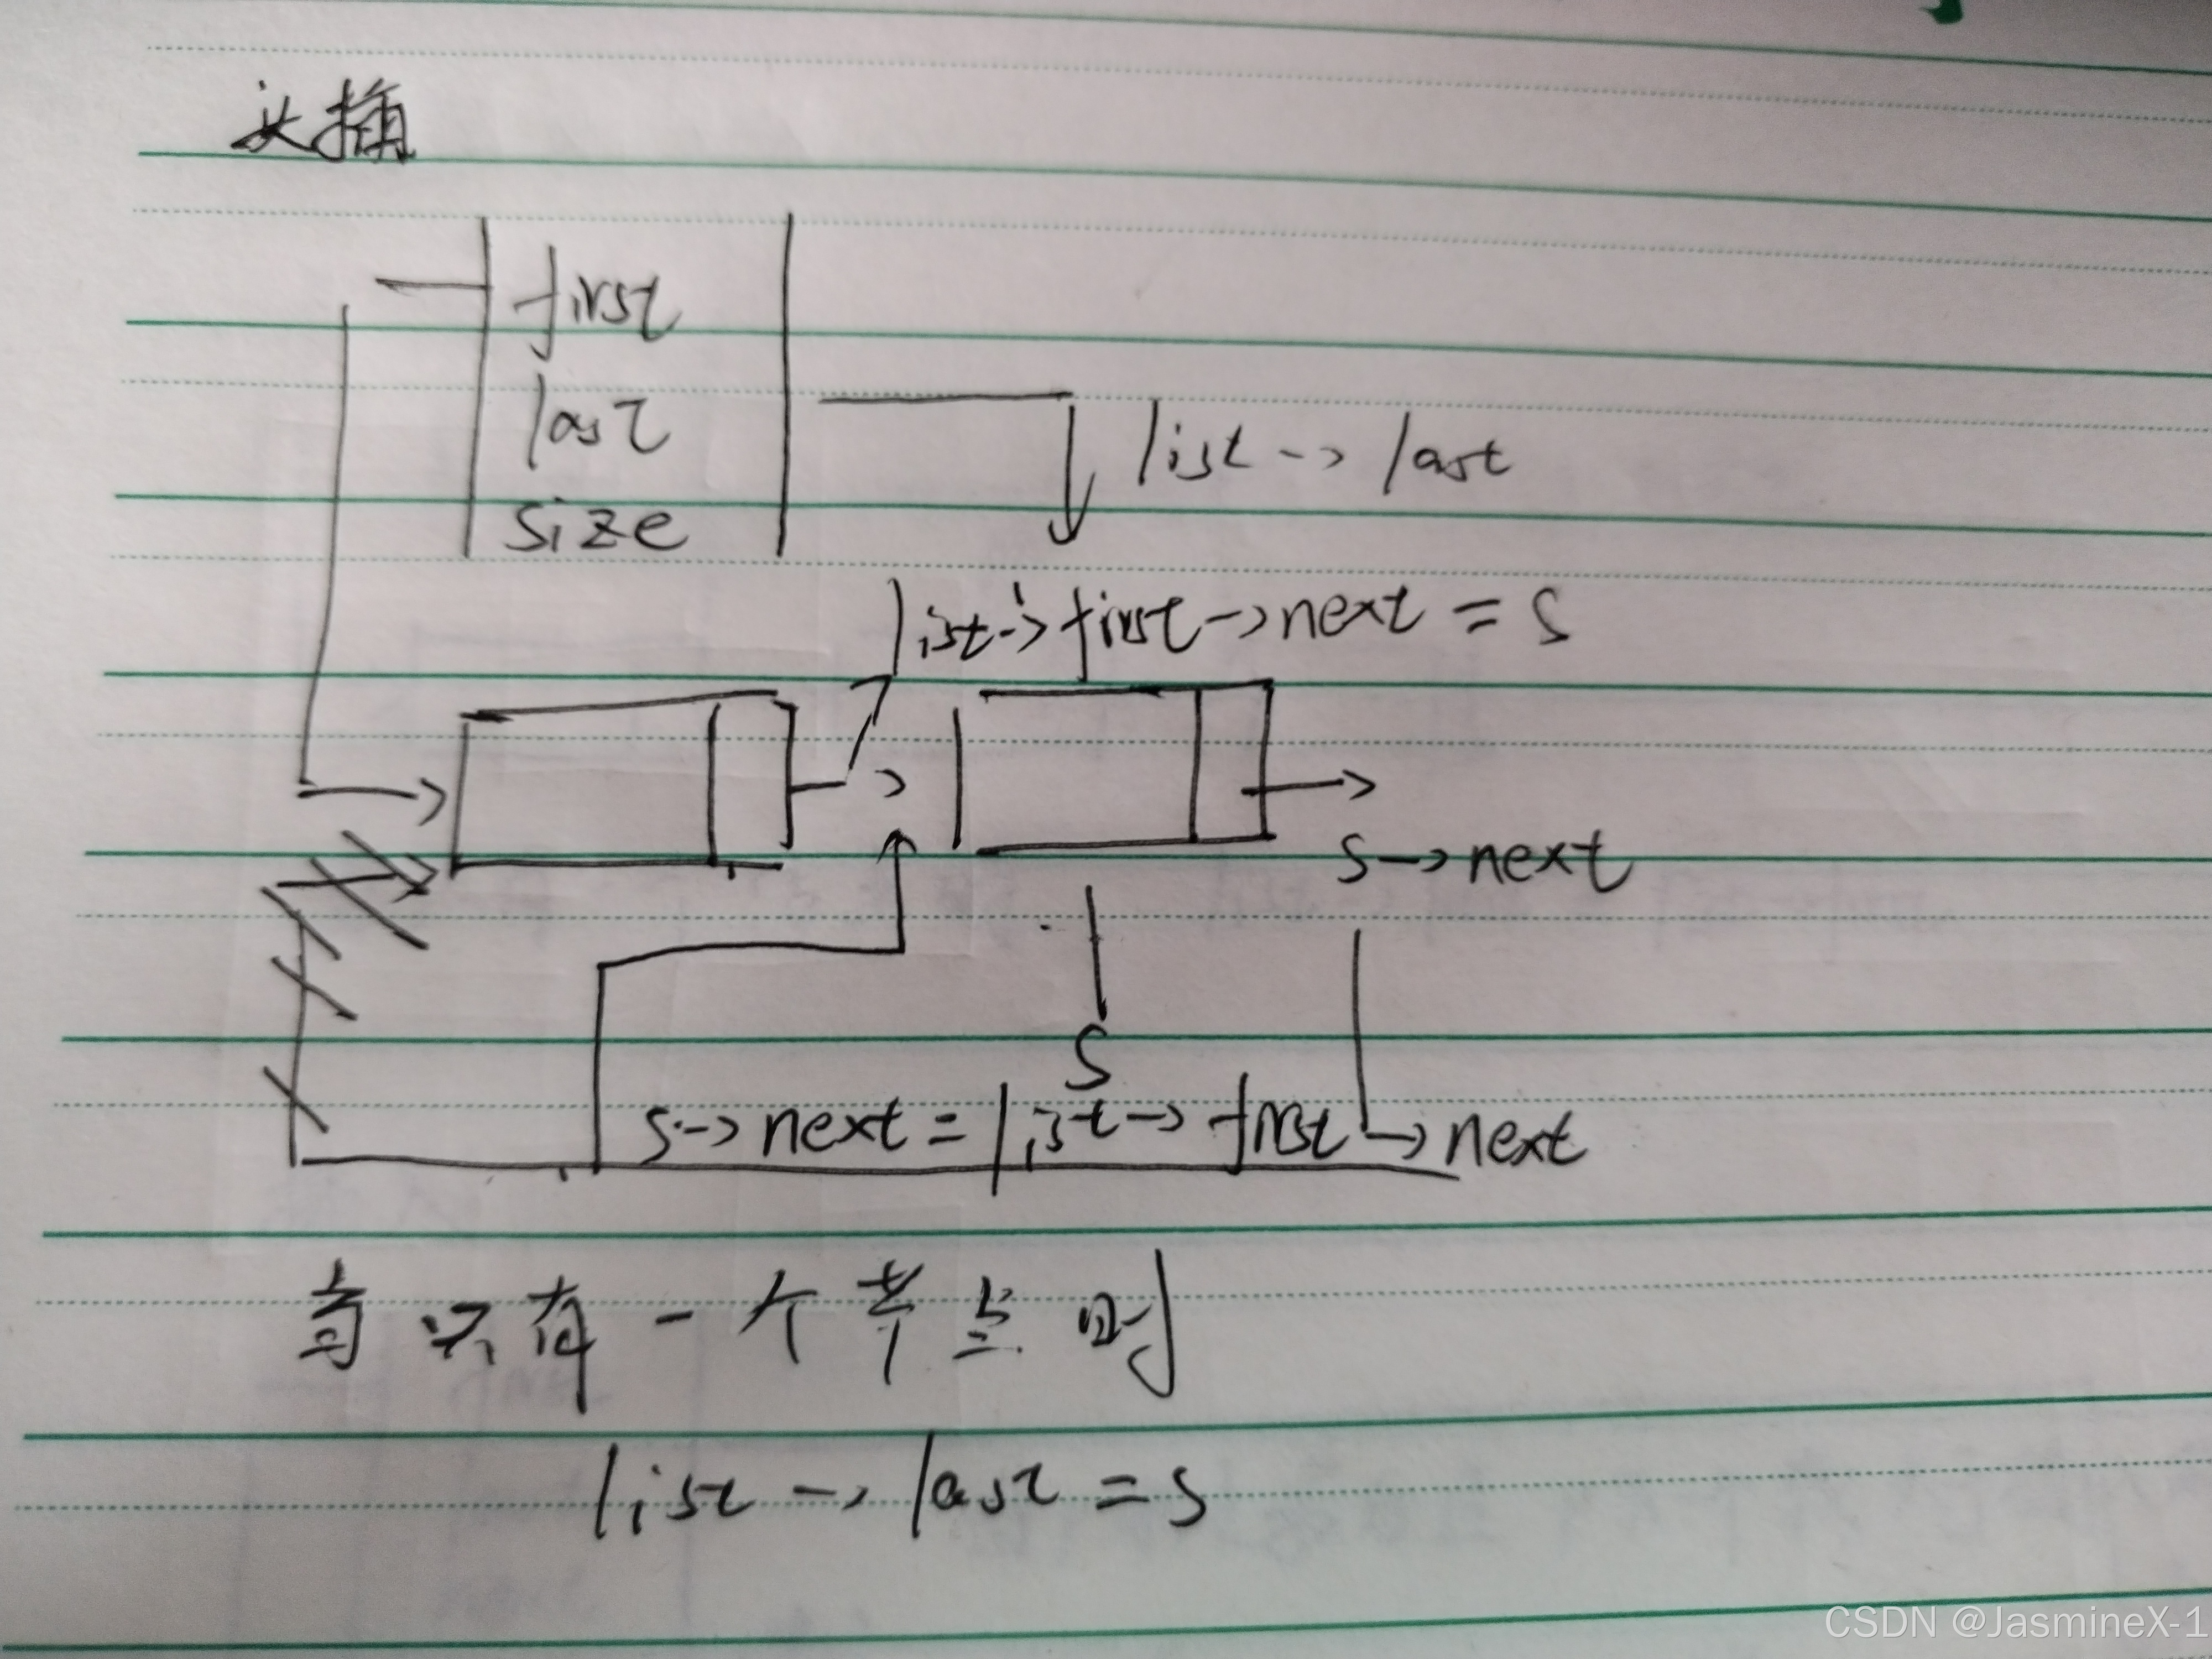 头插
first
last
size
list->last
list->first->next = s
s->next
s
s->next = list->first->next
当只有一个节点时
list->last = s
CSDN @JasmineX-1